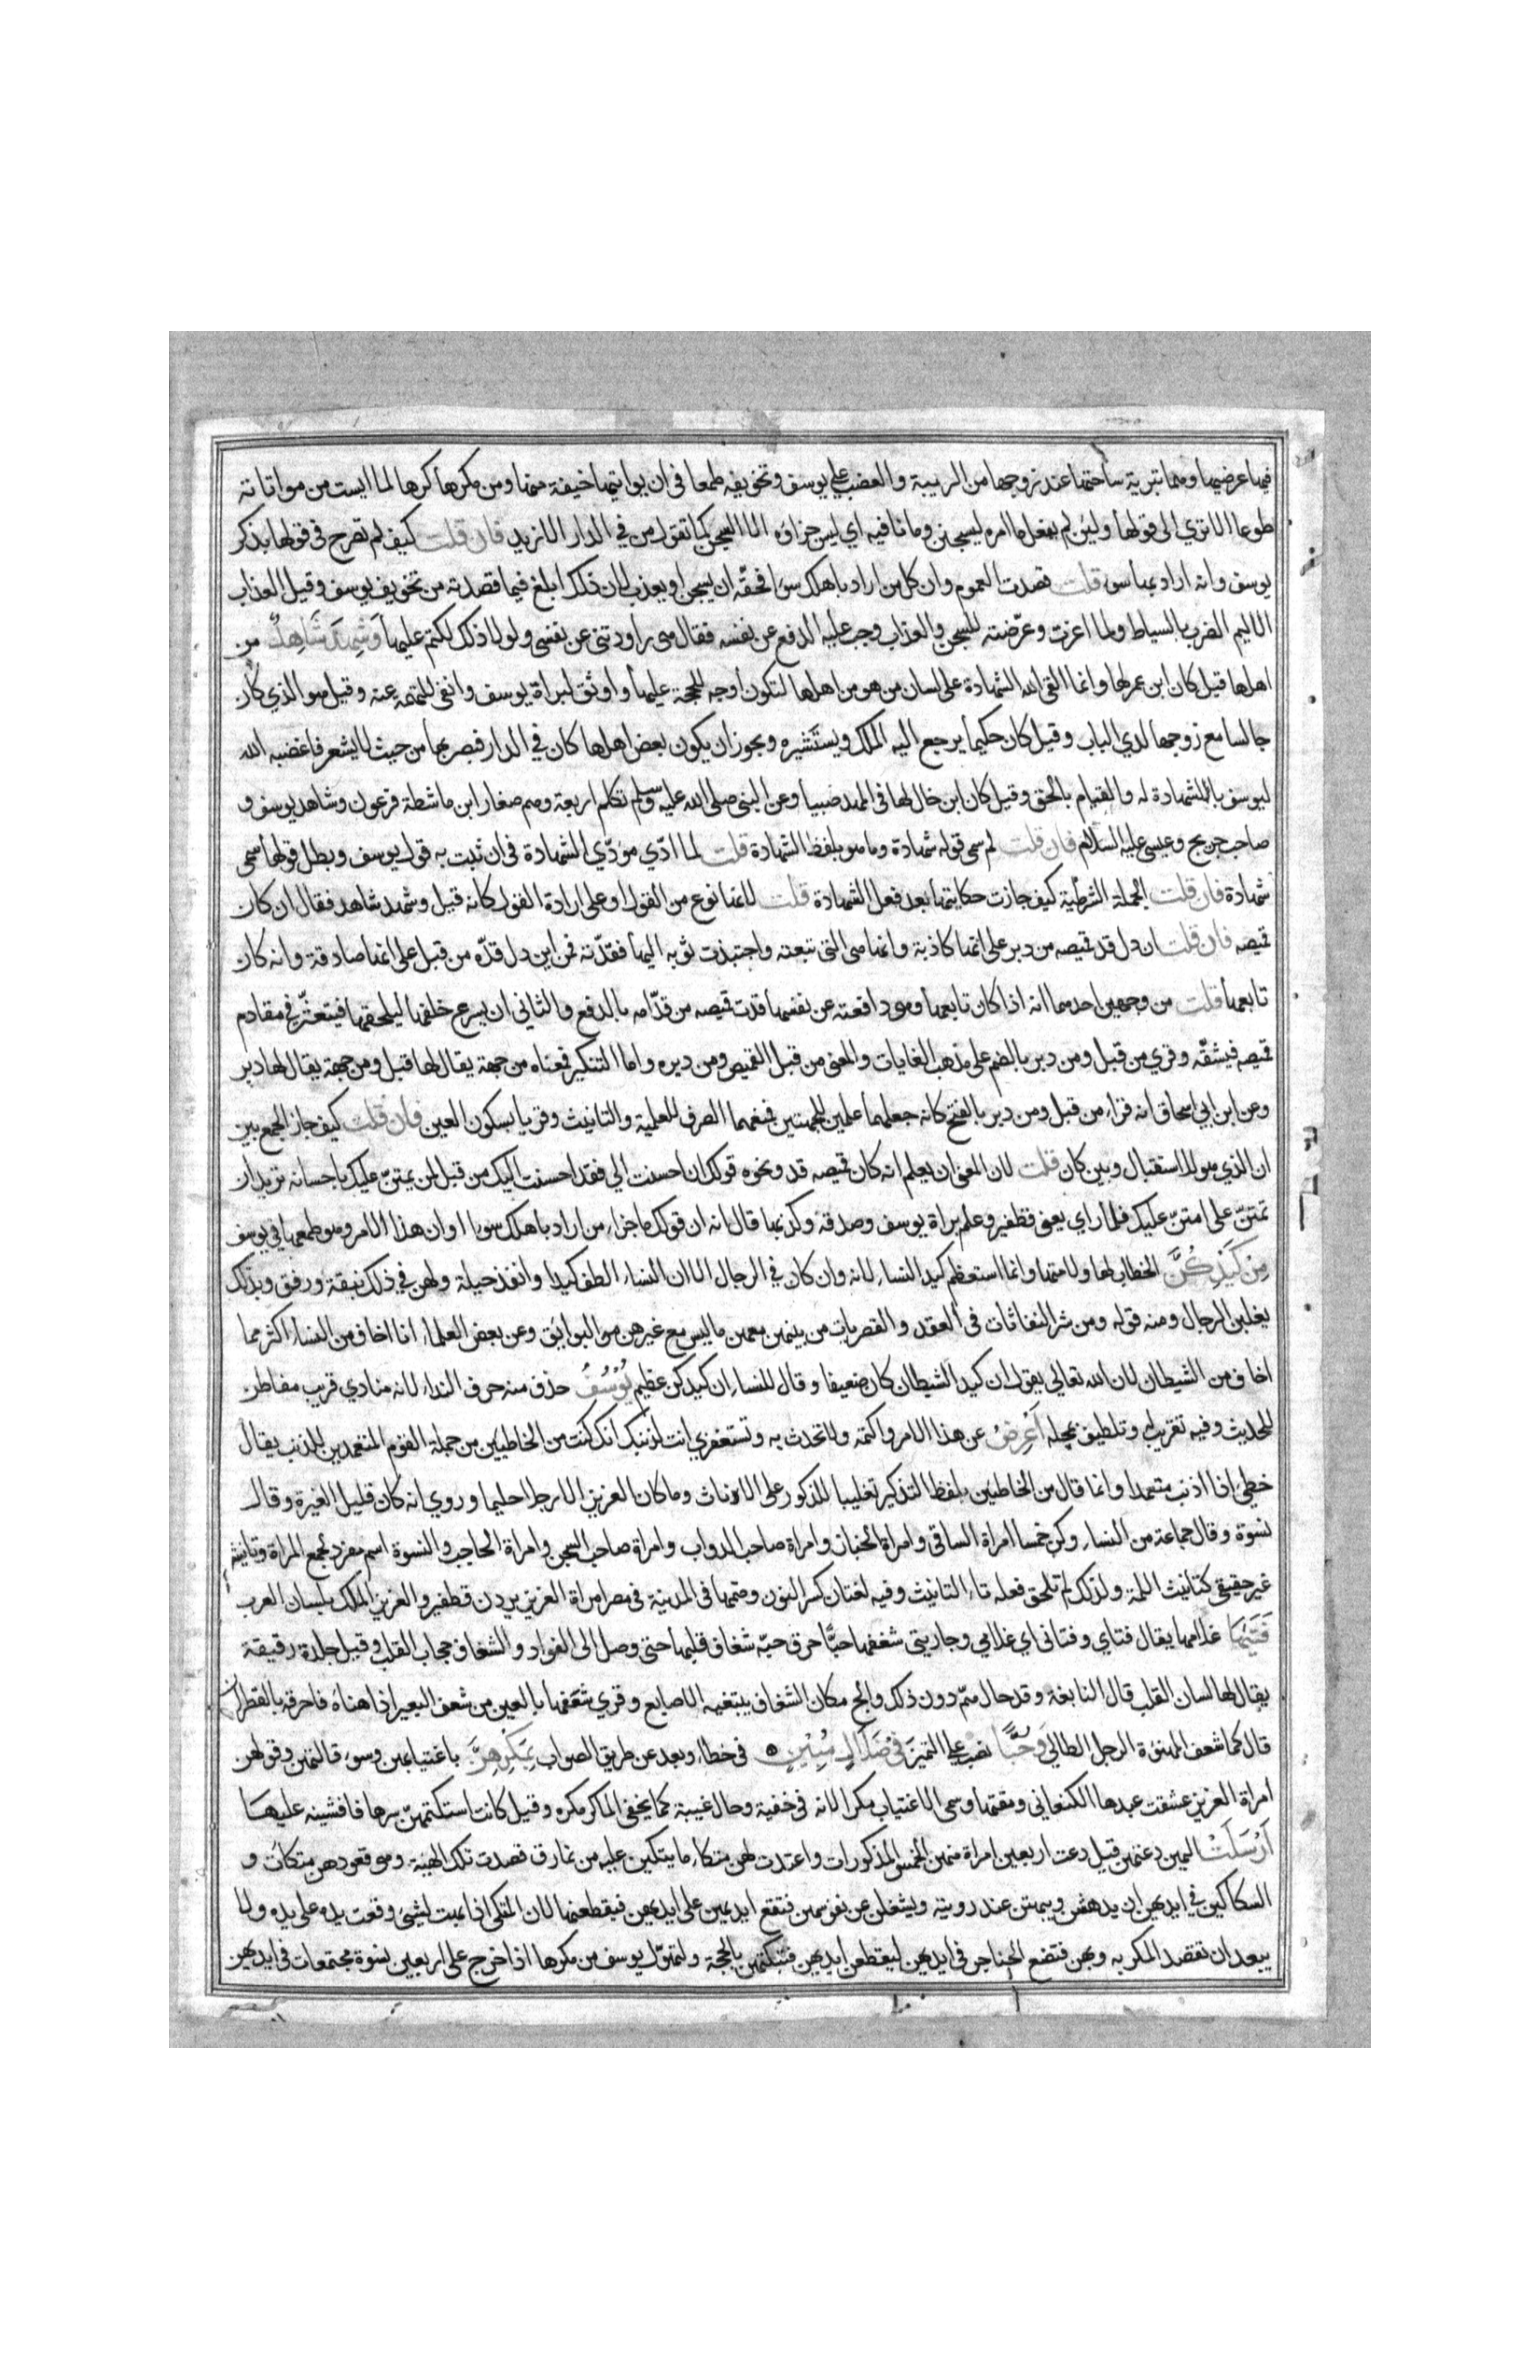 فيها عرضيها وهما تبرية ساحتها عند زوجها من الريبة والغضب على يوسف وتخويفه طمعا في ان يواتيها خيفة منها ومن مكرها كرها لما ايست من مواتاته
طوعا الا تري الى قولها ولئن لم يفعل ما امره ليسجنن وما نافيه اي ليس جزاؤه الا السجن كما تقول من في الدار الا زيد فان قلت كيف لم تصرح في قولها بذكر
يوسف وانه اراد بها سوء قلت قصدت العموم وان كل من اراد باهلك سوءا فحقّه ان يسجن او يعذب لان ذلك ابلغ فيما قصدته من تخويف يوسف وقيل العذاب
الاليم الضرب بالسياط ولما اغرت وعرّضته للسجن والعذاب وجب عليه الدفع عن نفسه فقال هي راودتني عن نفسي ولولا ذلك لكتم عليها وَشَهِدَ شَاهِدٌ من
اهلها قيل كان ابن عم لها وانما القى الله الشهادة على لسان من هو من اهلها لتكون اوجه للحجة عليها واوثق لبراة يوسف وانفى للتهمة عنه وقيل هو الذي كان
جالسا مع زوجها لدي الباب وقيل كان حكيما يرجع اليه الملك ويستشيره ويجوز ان يكون بعض اهلها كان في الدار فبصر بها من حيث لا يشعر فاغضبه الله
ليوسف بالشهادة له والقيام بالحق وقيل كان ابن خال لها في المهد صبيا وعن النبي صلى الله عليه وسلم تكلم اربعة وهم صغار ابن ماشطة فرعون وشاهد يوسف و
صاحب جريج وعيسى عليه السلام فان قلت لم سمي قوله شهادة وما هو بلفظ الشهادة قلت لما ادّي مؤدّي الشهادة في ان ثبت به قول يوسف وبطل قولها سمي
شهادة فان قلت الجملة الشرطية كيف جازت حكايتها بعد فعل الشهادة قلت لانها نوع من القول او على ارادة القول كانه قيل وشهد شاهد فقال ان كان
قميصه فان قلت ان دل قد قميصه من دبر على انها كاذبة وانها هي التي تبعته واجتبذت ثوبه اليها فقدّته فمن اين دل قدّه من قبل على انها صادقة وانه كان
تابعها قلت من وجهين احدهما انه اذا كان تابعها وهي دافعته عن نفسها قدت قميصه من قدّامه بالدفع والثاني ان يسرع خلفها ليلحقها فيتعثّر في مقادم
قميصه فيشقّه وقري من قبل ومن دبر بالضم على مذهب الغايات والمعنى من قبل القميص ومن دبره واما التنكير فمعناه من جهة يقال لها قبل ومن جهة يقال لها دبر
وعن ابن ابي اسحاق انه قراء من قبل ومن دبر بالفتح كانه جعلهما علمين للجهتين فمنعهما الصرف للعلمية والتانيث وقريا بسكون العين فان قلت كيف جاز الجمع بين
ان الذي هو للاستقبال وبين كان قلت لان المعنى ان يعلم انه كان قميصه قد ونحوه قولك ان احسنت الي فقد احسنت اليك من قبل لمن يمتنّ عليك باحسانه تريد ان
تمتنّ علي امتنّ عليك فلما راي يعني قطفير وعلم براة يوسف وصدقه وكذبها قال انه ان قولك ما جزاء من اراد باهلك سوءا او ان هذا الامر وهو طمعها في يوسف
مِنْ كَيْدِكُنَّ الخطاب لها ولامتها وانما استعظم كيد النساء لانه وان كان في الرجال الا ان النساء الطف كيدا وانفذ حيلة ولهن في ذلك نيقة ورفق وبذلك
يغلبن الرجال ومنه قوله ومن شر النفاثات في العقد والقصريات من بينهن معهن ما ليس مع غيرهن من البوائق وعن بعض العلماء انا اخاف من النساء اكثر مما
اخاف من الشيطان لان الله تعالي يقول ان كيد الشيطان كان ضعيفا وقال للنساء ان كيدكن عظيم يُوسُفُ حذف منه حرف النداء لانه منادي قريب مفاطن
للحديث وفيه تقريب له وتلطيف بمحله اَعْرِضْ عن هذا الامر واكتمه ولا تحدث به وتستغفري انت لذنبك انك كنت من الخاطيين من جملة القوم المتعمدين للذنب يقال
خطئ اذا اذنب متعمدا وانما قال من الخاطئين بلفظ التذكير تغليبا للذكور على الاناث وما كان العزيز الا رجلا حليما وروي انه كان قليل الغيرة وقال
نسوة وقال جماعة من النساء وكن خمسا امراة الساقي وامراة الخباز وامراة صاحب الدواب وامراة صاحب السجن وامراة الحاجب والنسوة اسم مفرد لجمع المراة وتانيثه
غير حقيقي كتانيث اللمة ولذلك لم تلحق فعله تاء التانيث وفيه لغتان كسر النون وضمها في المدينة في مصر امراة العزيز يردن قطفير والعزيز الملك بلسان العرب
فَتَيٰهَا غلامها يقال فتاي وفتاتي اي غلامي وجاريتي شغفها حبًّا خرق حبّه شغاف قلبها حتى وصل الى الفواد والشغاف حجاب القلب وقيل جلدة رقيقة
يقال لها لسان القلب قال النابغة وقد حال همّ دون ذلك والج مكان الشغاف تبتغيه الاصابع وقري شعفها بالعين من شعف البعير اذا هناه فاحرقه بالقطران
قال كما شعف المهنؤة الرجل الطالي وَحُبًّا نصب على التمييز فِي ضَلَالٍ مُبِينٍ في خطاء وبعد عن طريق الصواب بِمَكْرِهِنَّ باغتيابهن وسوء قالتهن وقولهن
امراة العزيز عشقت عبدها الكنعاني ومقتها وسمي الاغتياب مكرا لانه في خفية وحال غيبة كما يخفي الماكر مكره وقيل كانت استكتمتهنّ سرها فافشينه عليها
اَرْسَلَتْ اليهن دعتهن قيل دعت اربعين امراة منهن الخمس المذكورات واعتدت لهن متكاء ما يتكين عليه من نمارق قصدت تلك الهيئة وهو قعودهن متكات و
السكاكين في ايديهن ان يدهشن ويبهتن عند رويته ويشغلن عن نفوسهن فتقع ايديهن على ايديهن فيقطعنها لان المتكي اذا بهت لشيئ وقعت يده على يده ولا
يبعد ان تقصد المكر به وبهن فتضع الخناجر في ايديهن ليقطعن ايديهن فتبكتهن بالحجة ولتهوّل يوسف من مكرها اذا خرج على اربعين نسوة مجتمعات في ايديهن